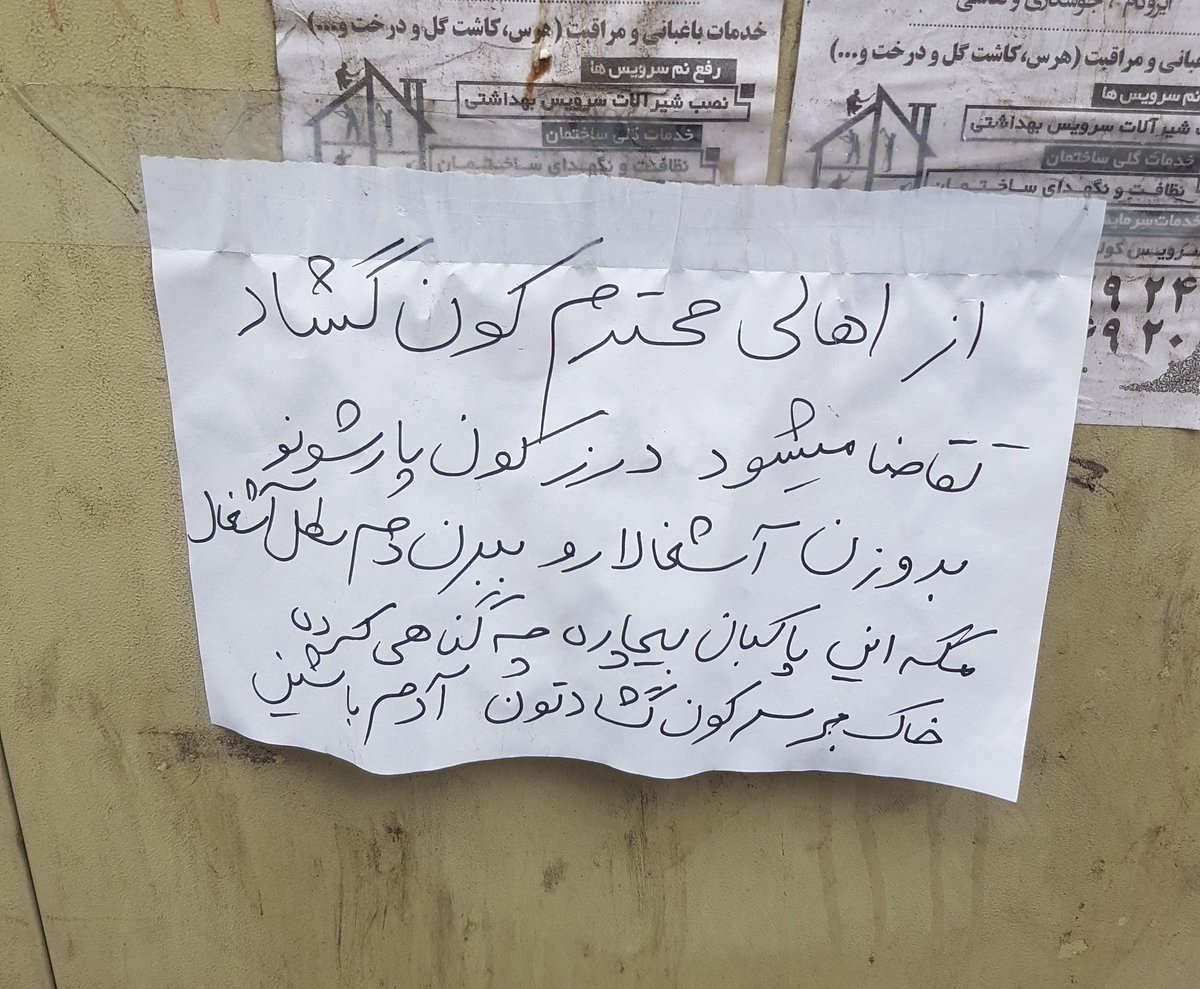 خدمات باغبانی و مراقبت (هرس،کاشت گل و درخت و...)
رفع نم سرویس ها
نصب شیرآلات سرویس بهداشتی
خدمات کلی ساختمان
نظافت و نگهداری ساختمان
باغبانی و مراقبت (هرس،کاشت گل و درخت و...)
نم سرویس ها
شیرآلات سرویس بهداشتی
خدمات کلی ساختمان
نظافت و نگهداری ساختمان
از اهالی محترم کون گشاد
تقاضا میشود درز کون پارشونو
بدوزن آشغالا رو ببرن دم سطل آشغال
مگه این پاکبان بیچاره چه گناهی کرده
خاک بر سر کون گشادتون آدم باشین